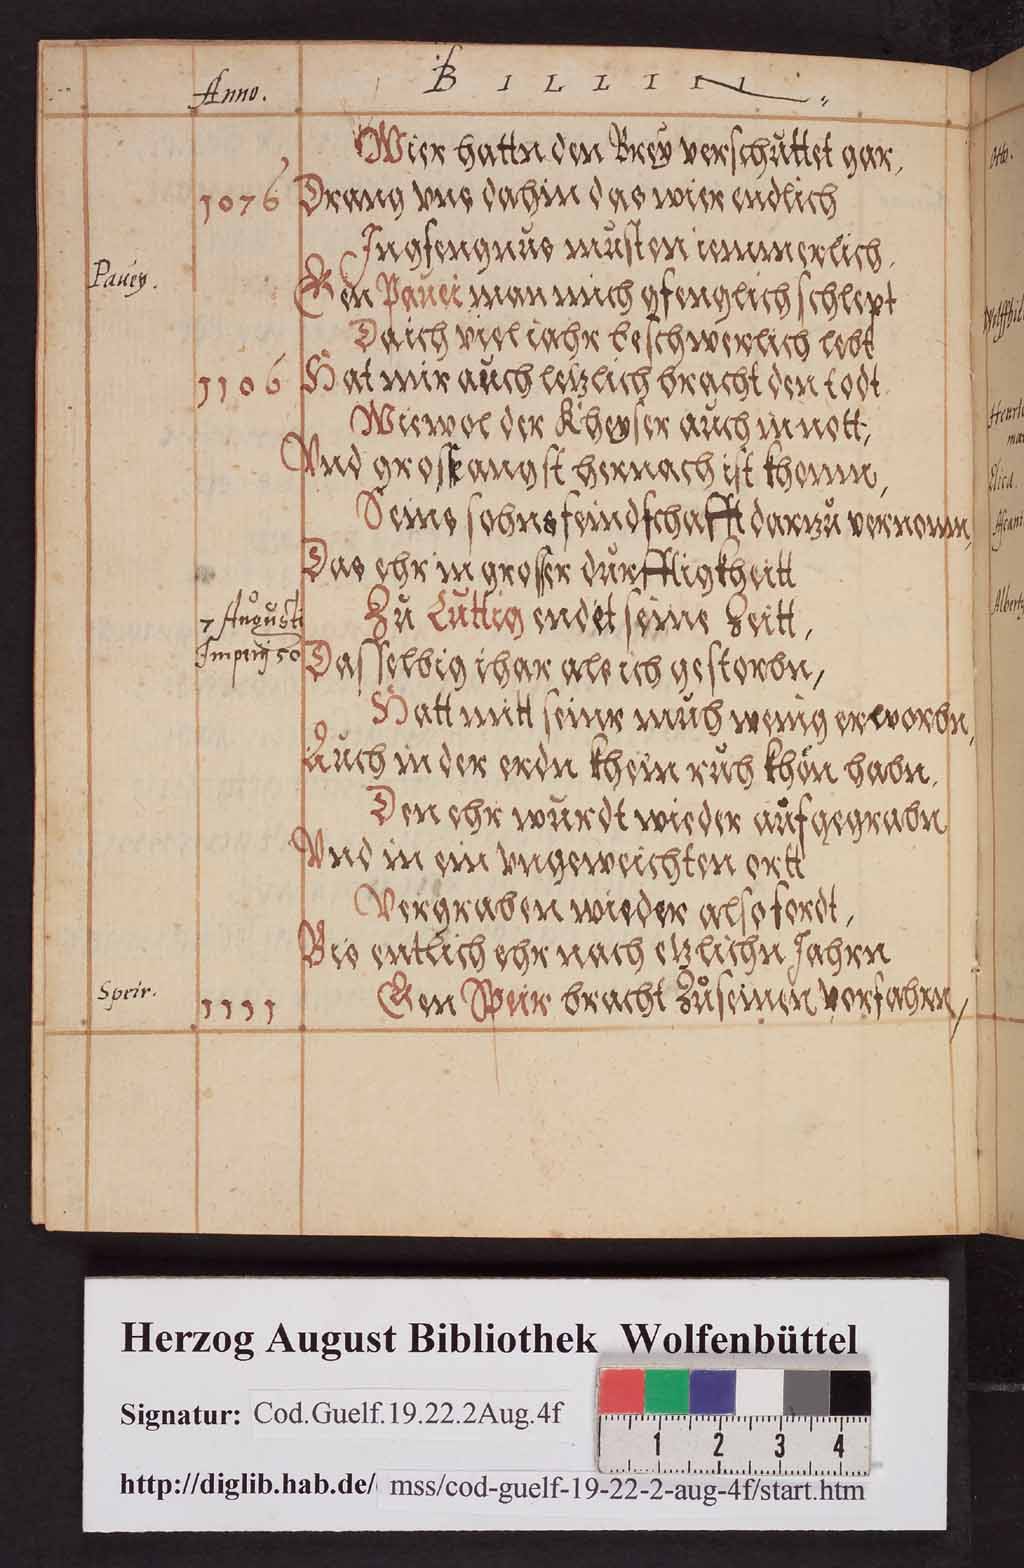 Anno.
BILLIN
Wier hattn den Brey verschüttet gar,
1076 Drang vns dahin das wier endlich
Ingfengnus musten iemmerlich.
Pavey.
Gen Pavei man mich gfenglich schlept
Da ich viel iahr beschwerlich lebt
1106 Hat mir auch letzlich bracht den todt
Wiewol der Kheyser auch in nott,
Vnd grosse angst hernach ist khomn,
Seins sohns feindschafft darzu vernomn,
Das ehr in grosser dürfftigkheitt
7 Augusti
Zu Lüttig endet seine Zeitt,
Imperij 50
Dasselbig ihar als ich gestorbn,
Hatt mitt seinr müh wenig erworbn,
Auch in der erdn khein ruh khön habn,
Den ehr wurdt wieder aufgegrabn
Vnd in ein vngeweichten ortt
Vergraben wieder also fordt,
Bis entlich ehr nach etzlichn Jahrn
Speir.
1111 Gen Speir bracht Zu seinen vorfahrn,
Otto.
Elica.
Herzog August Bibliothek Wolfenbüttel
Signatur: Cod.Guelf.19.22.2Aug.4f
1 2 3 4
http://diglib.hab.de/ mss/cod-guelf-19-22-2-aug-4f/start.htm